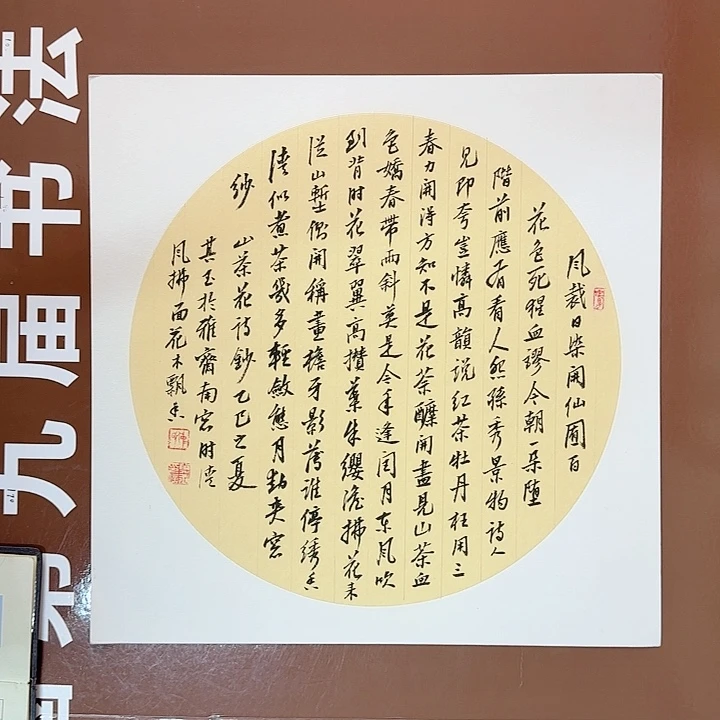 风裁日染开仙圃百
花色死猩血谬今朝一朵堕
阶前应有看人怨孙秀景物诗人
见即夸岂怜高韵说红茶牡丹枉用三
春力开得方知不是花荼醾开尽见山茶血
色娇春带雨斜莫是今年逢闰月东风吹
到背时花翠翼高攒叶朱缨澹拂花来
从山堑侧开称画檐牙影荐谁停绣香
清似煮茶几多轻敛态月劫奕窗
纱
山茶花诗钞乙巳之夏
其玉于雅斋南窗时清
风拂面花木飘香
第九届书法